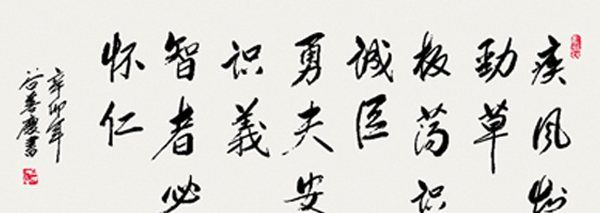 疾风知
勁草
板荡识
诚臣
勇夫安
识義
智者必
怀仁
辛卯年
谷善慶書